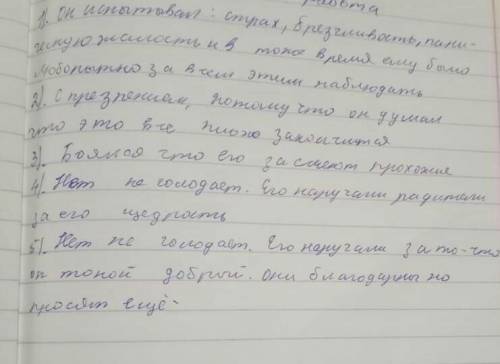 работа
1). Он испытывал: страх, брезгливость, пани-
ческую жалость и в тоже время ему было
любопытно за всем этим наблюдать
2). С презрением, потому что он думал
что это все плохо закончится
3). Боялся что его засмеют прохожие
4). Нет не голодает. Его наручали радители
за его щедрость
5). Нет не голодает. Его наручали за то-что
он такой добрый. они благодарны но
просят ещё-